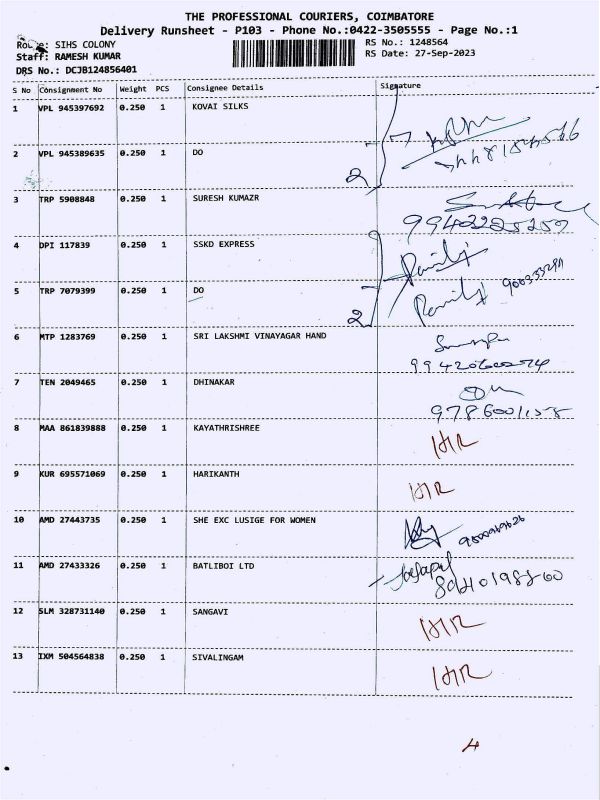 THE PROFESSIONAL COURIERS, COIMBATORE
Delivery Runsheet - P103 - Phone No.:0422-3505555 - Page No.:1
Route: SIHS COLONY RS No.: 1248564
Staff: RAMESH KUMAR RS Date: 27-Sep-2023
DRS No.: DCJB124856401
S No Consignment No Weight PCS Consignee Details Signature
1 VPL 945397692 0.250 1 KOVAI SILKS
2 VPL 945389635 0.250 1 DO
2
3 TRP 5908848 0.250 1 SURESH KUMAZR
9942225259
4 DPI 117839 0.250 1 SSKD EXPRESS
5 TRP 7079399 0.250 1 DO
2
6 MTP 1283769 0.250 1 SRI LAKSHMI VINAYAGAR HAND
7 TEN 2049465 0.250 1 DHINAKAR
8 MAA 861839888 0.250 1 KAYATHRISHREE
9 KUR 695571069 0.250 1 HARIKANTH
10 AMD 27443735 0.250 1 SHE EXC LUSIGE FOR WOMEN
11 AMD 27433326 0.250 1 BATLIBOI LTD
12 SLM 328731140 0.250 1 SANGAVI
13 IXM 504564838 0.250 1 SIVALINGAM
4